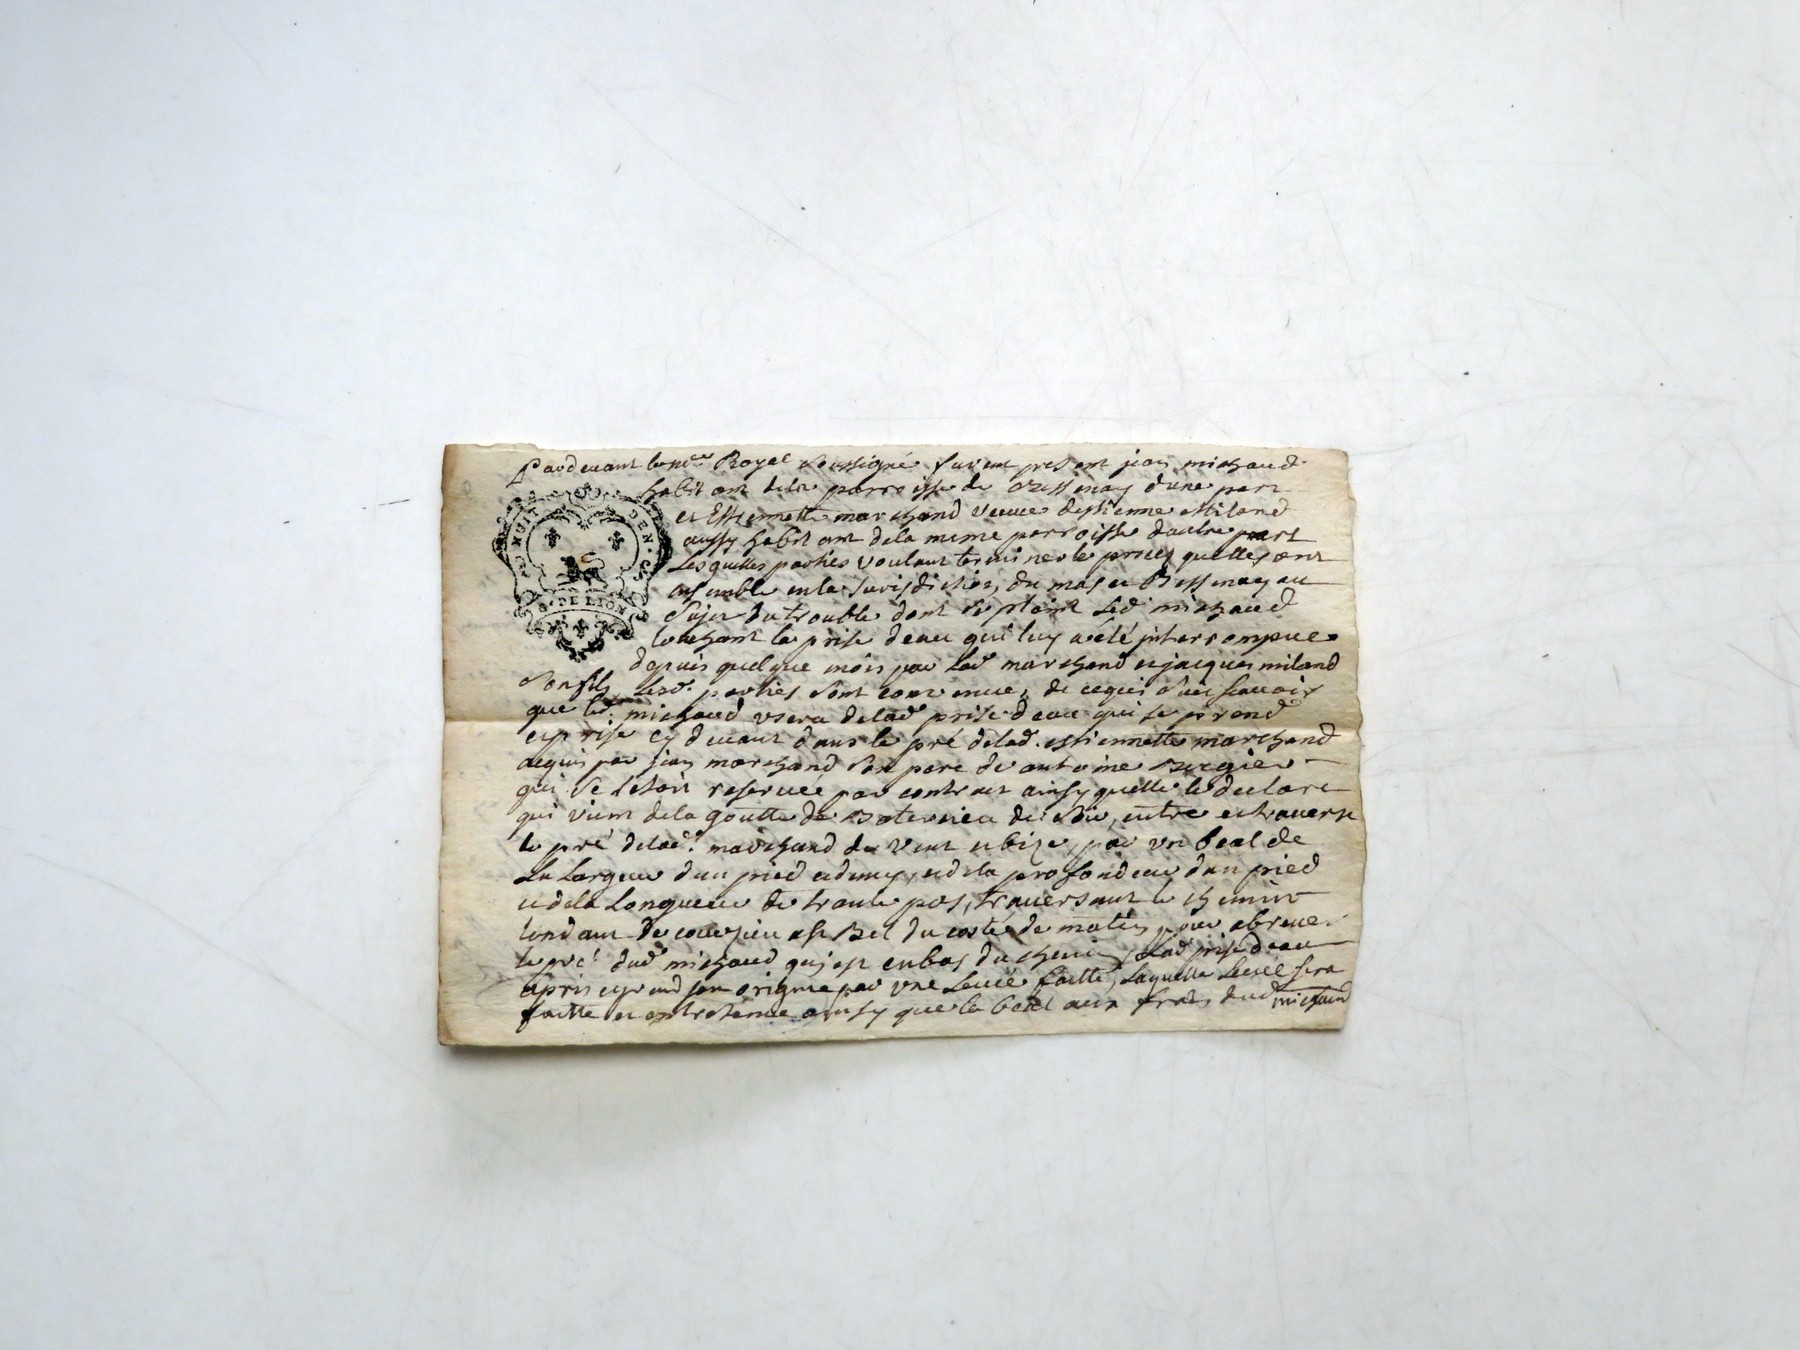 Pardevant le no.re Royal soussigné furent present jean michaud
habitant de la parroisse de Bessenay d'une part
et Estiennette marchand veuve destienne Miland
HUIT DEN.
aussy habitant de la mime parroisse dautre part
Lesquelles parties voulant terminer le procès quelles ont
ensemble en la Jurisdiction du mas et Bessenay au
G. DE LION
Sujet du trouble dont se plaint led. michaud
touchant la prise deau qui luy a été interrompue
depuis quelque mois par lad. marchand et jacques miland
son fils, Lesd. parties sont convenue, de cequi suit scavoir
que led. michaud usera delad. prise deau qui se prend
et prise cy devant dans le pré delad. estiennette marchand
acquis par jean marchand son pere de antoine
qui se letoit reservée par contract ainsy quelle le declare
qui vient dela goutte de de soir, entre et traverse
le pré delad. marchand de vent et bize, par un beal de
La Largeur dun pied et demy, et dela profondeur dun pied
et dela Longueur de trante pas, traversant le chemin
tendant de courzieu Bel du costé de matin pour abreuer
le pré dud. michaud qui est en bas du chemin, Lad. prise deau
apris et prend son origine par une Levée faitte, Laquelle Levée sera
faitte et entretenue ainsy que le beal aux frais dud michaud